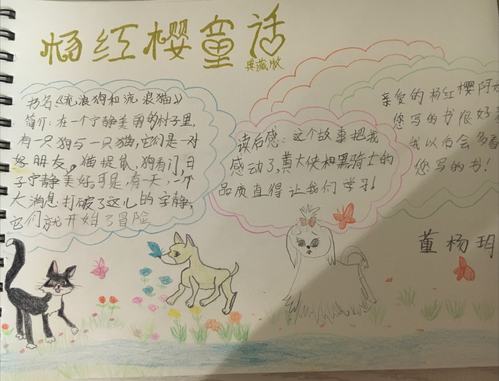 杨红樱童话
典藏版
书名《流浪狗和流浪猫》
简介：在一个宁静美丽的村子里，
有一只狗与一只猫，它们是一对
好朋友。猫捉鼠，狗看门，日
子宁静美好。可是，有一天，一个
大消息打破了这儿的宁静，
它们就开始了冒险
读后感：这个故事把我
感动了，黄大侠和黑骑士的
品质值得让我们学习！
亲爱的杨红樱阿
您写的书很好
我以后会多
您写的书！
董杨玥